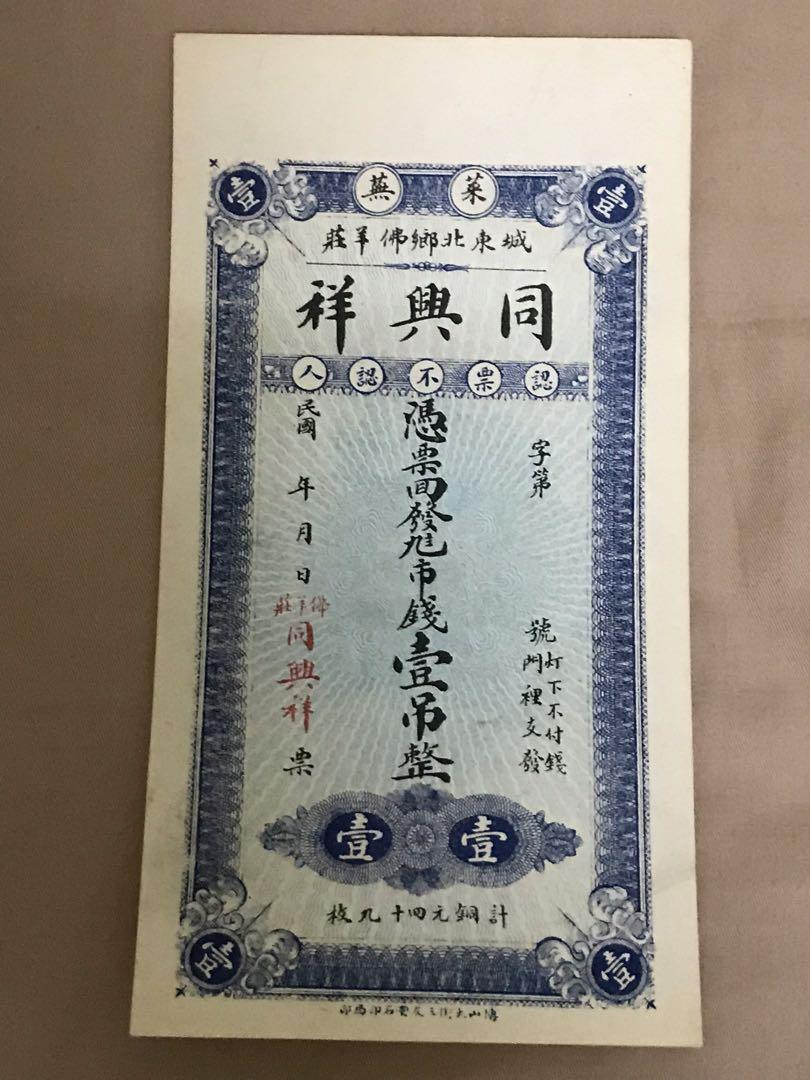 萊蕪
城東北鄉佛羊莊
同興祥
認票不認人
壹
壹
字第
號
灯下不付錢
門裡支發
憑票回發九市錢壹吊整
民國
年
月
日
佛羊莊
同興祥
票
壹
壹
計銅元四十九枚
壹
壹
博山大街
石印局印